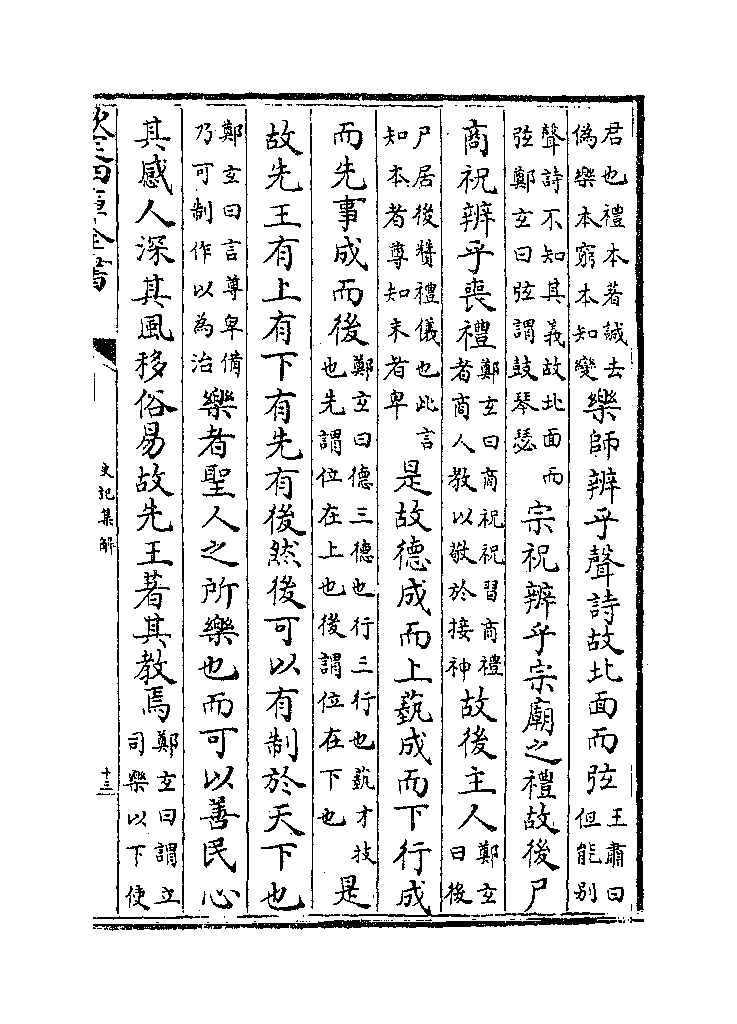 君也禮本著誠去偽樂本窮本知變樂師辨乎聲詩故北面而弦王肅曰但能别
聲詩不知其義故北面而弦鄭玄曰弦謂鼓琴瑟宗祝辨乎宗廟之禮故後尸
商祝辨乎喪禮鄭玄曰商祝祝習商禮者商人教以敬於接神故後主人鄭玄曰後
尸居後賛禮儀也此言知本者尊知末者卑是故德成而上藝成而下行成
而先事成而後鄭玄曰德三德也行三行也藝才技也先謂位在上也後謂位在下也是
故先王有上有下有先有後然後可以有制於天下也
鄭玄曰言尊卑備乃可制作以為治樂者聖人之所樂也而可以善民心
其感人深其風移俗易故先王著其教焉鄭玄曰謂立司樂以下使
欽定四庫全書
史記集解
十三